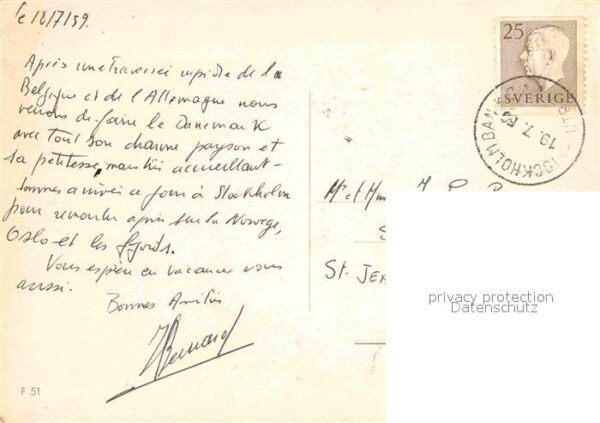 le 18/7/59.
Après une traversée rapide de la
Belgique et de l'Allemagne nous
venons de faire le Danemark
avec tout son charme paysan et
sa petitesse, mais très accueillant -
sommes arrivés ce jour à Stockholm
pour remonter après sur la Norvège,
Oslo et les fjords.
Vous espère en vacances vous
aussi.
Bonnes Amitiés
Bernard
F 51
25
SVERIGE
STOCKHOLM BAN
19.7.59
Mr et Mme
S
St. JEA
privacy protection
Datenschutz